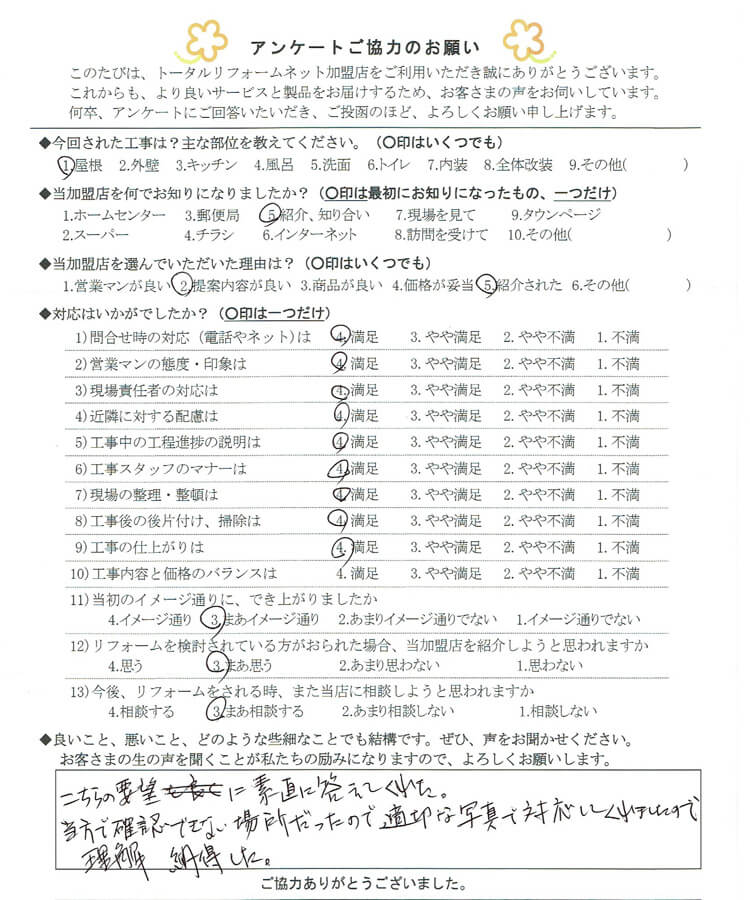 アンケートご協力のお願い
このたびは、トータルリフォームネット加盟店をご利用いただき誠にありがとうございます。
これからも、より良いサービスと製品をお届けするため、お客さまの声をお伺いしています。
何卒、アンケートにご回答いたいだき、ご投函のほど、よろしくお願い申し上げます。
◆今回された工事は？主な部位を教えてください。（〇印はいくつでも）
1.屋根 2.外壁 3.キッチン 4.風呂 5.洗面 6.トイレ 7.内装 8.全体改装 9.その他( )
◆当加盟店を何でお知りになりましたか？（〇印は最初にお知りになったもの、一つだけ）
1.ホームセンター 3.郵便局 5.紹介、知り合い 7.現場を見て 9.タウンページ
2.スーパー 4.チラシ 6.インターネット 8.訪問を受けて 10.その他( )
◆当加盟店を選んでいただいた理由は？（〇印はいくつでも）
1.営業マンが良い 2.提案内容が良い 3.商品が良い 4.価格が妥当 5.紹介された 6.その他( )
◆対応はいかがでしたか？（〇印は一つだけ）
1)問合せ時の対応（電話やネット）は 4.満足 3.やや満足 2.やや不満 1.不満
2)営業マンの態度・印象は 4.満足 3.やや満足 2.やや不満 1.不満
3)現場責任者の対応は 4.満足 3.やや満足 2.やや不満 1.不満
4)近隣に対する配慮は 4.満足 3.やや満足 2.やや不満 1.不満
5)工事中の工程進捗の説明は 4.満足 3.やや満足 2.やや不満 1.不満
6)工事スタッフのマナーは 4.満足 3.やや満足 2.やや不満 1.不満
7)現場の整理・整頓は 4.満足 3.やや満足 2.やや不満 1.不満
8)工事後の後片付け、掃除は 4.満足 3.やや満足 2.やや不満 1.不満
9)工事の仕上がりは 4.満足 3.やや満足 2.やや不満 1.不満
10)工事内容と価格のバランスは 4.満足 3.やや満足 2.やや不満 1.不満
11)当初のイメージ通りに、でき上がりましたか
4.イメージ通り 3.まあイメージ通り 2.あまりイメージ通りでない 1.イメージ通りでない
12)リフォームを検討されている方がおられた場合、当加盟店を紹介しようと思われますか
4.思う 3.まあ思う 2.あまり思わない 1.思わない
13)今後、リフォームをされる時、また当店に相談しようと思われますか
4.相談する 3.まあ相談する 2.あまり相談しない 1.相談しない
◆良いこと、悪いこと、どのような些細なことでも結構です。ぜひ、声をお聞かせください。
お客さまの生の声を聞くことが私たちの励みになりますので、よろしくお願いします。
こちらの要望に素直に答えてくれた。
当方で確認できない場所だったので適切な写真で対応してくれましたので
理解 納得した。
ご協力ありがとうございました。